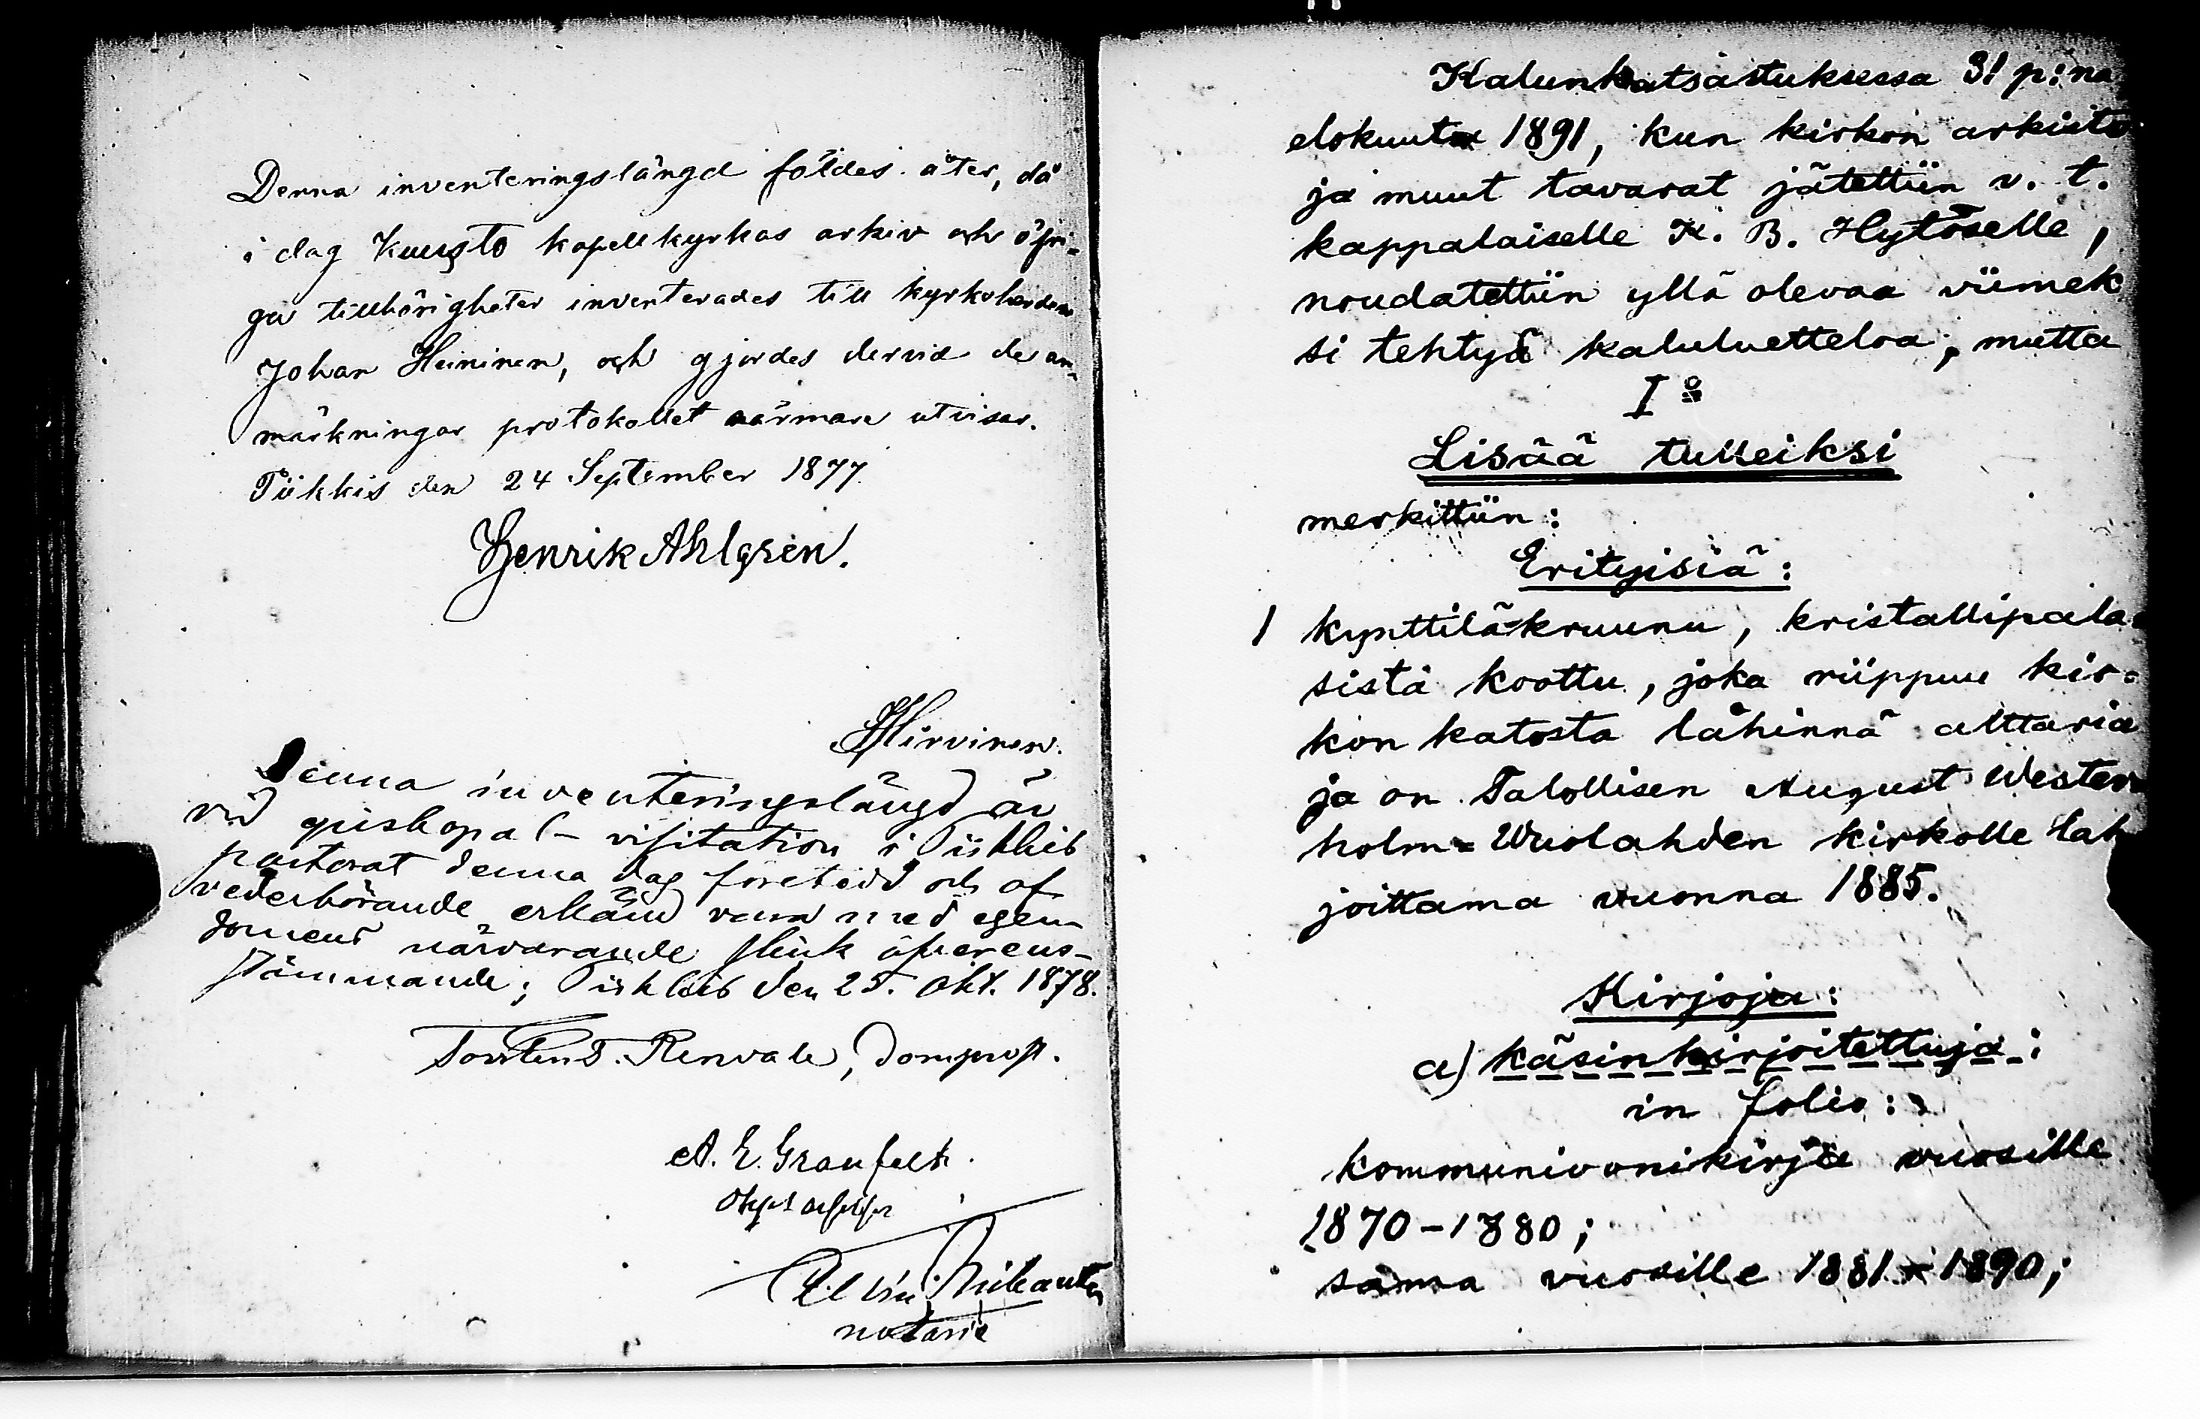 Denna inventeringslängd följdes åter, då
i dag Kuusto kapellkyrkas arkiv och öfri-
ga tillhörigheter inventerades till kyrkoherden
Johan Heininen, och gjordes dervid de an-
märkningar protokollet närmare utvisar.
Piikkis den 24 September 1877.
Henrik Ahlgren.
Hirvinen.
Denna inventeringslängd är
vid episkopal-visitation i Piikkis
pastorat denna dag företedd och af
vederbörande erkänd vara med egen-
domens närvarande skick öfverens-
stämmande; Piikkis den 25. Okt. 1878.
Torsten T. Renvall, Domprost.
A. E. Granfelt.
notarie
Kalunkatsastuksessa 31 p:nä
elokuuta 1891, kun kirkon arkisto
ja muut tavarat jätettiin v. t.
kappalaiselle K. B. Hytöselle,
noudatettiin yllä olevaa viimek
si tehtyä kaluluetteloa; mutta
I:o
Lisää tulleiksi
merkittiin:
Erityisiä:
1 kynttiläkruunu, kristallipala-
sista koottu, joka riippuu kir-
kon katosta lähinnä alttaria
ja on Talollisen August Wester-
holm-Wuolahden kirkolle lah
joittama vuonna 1885.
Kirjoja:
a) käsinkirjoitettuja:
in folio:
kommunivonikirja vuosille
1870-1880;
sama vuosille 1881-1890;